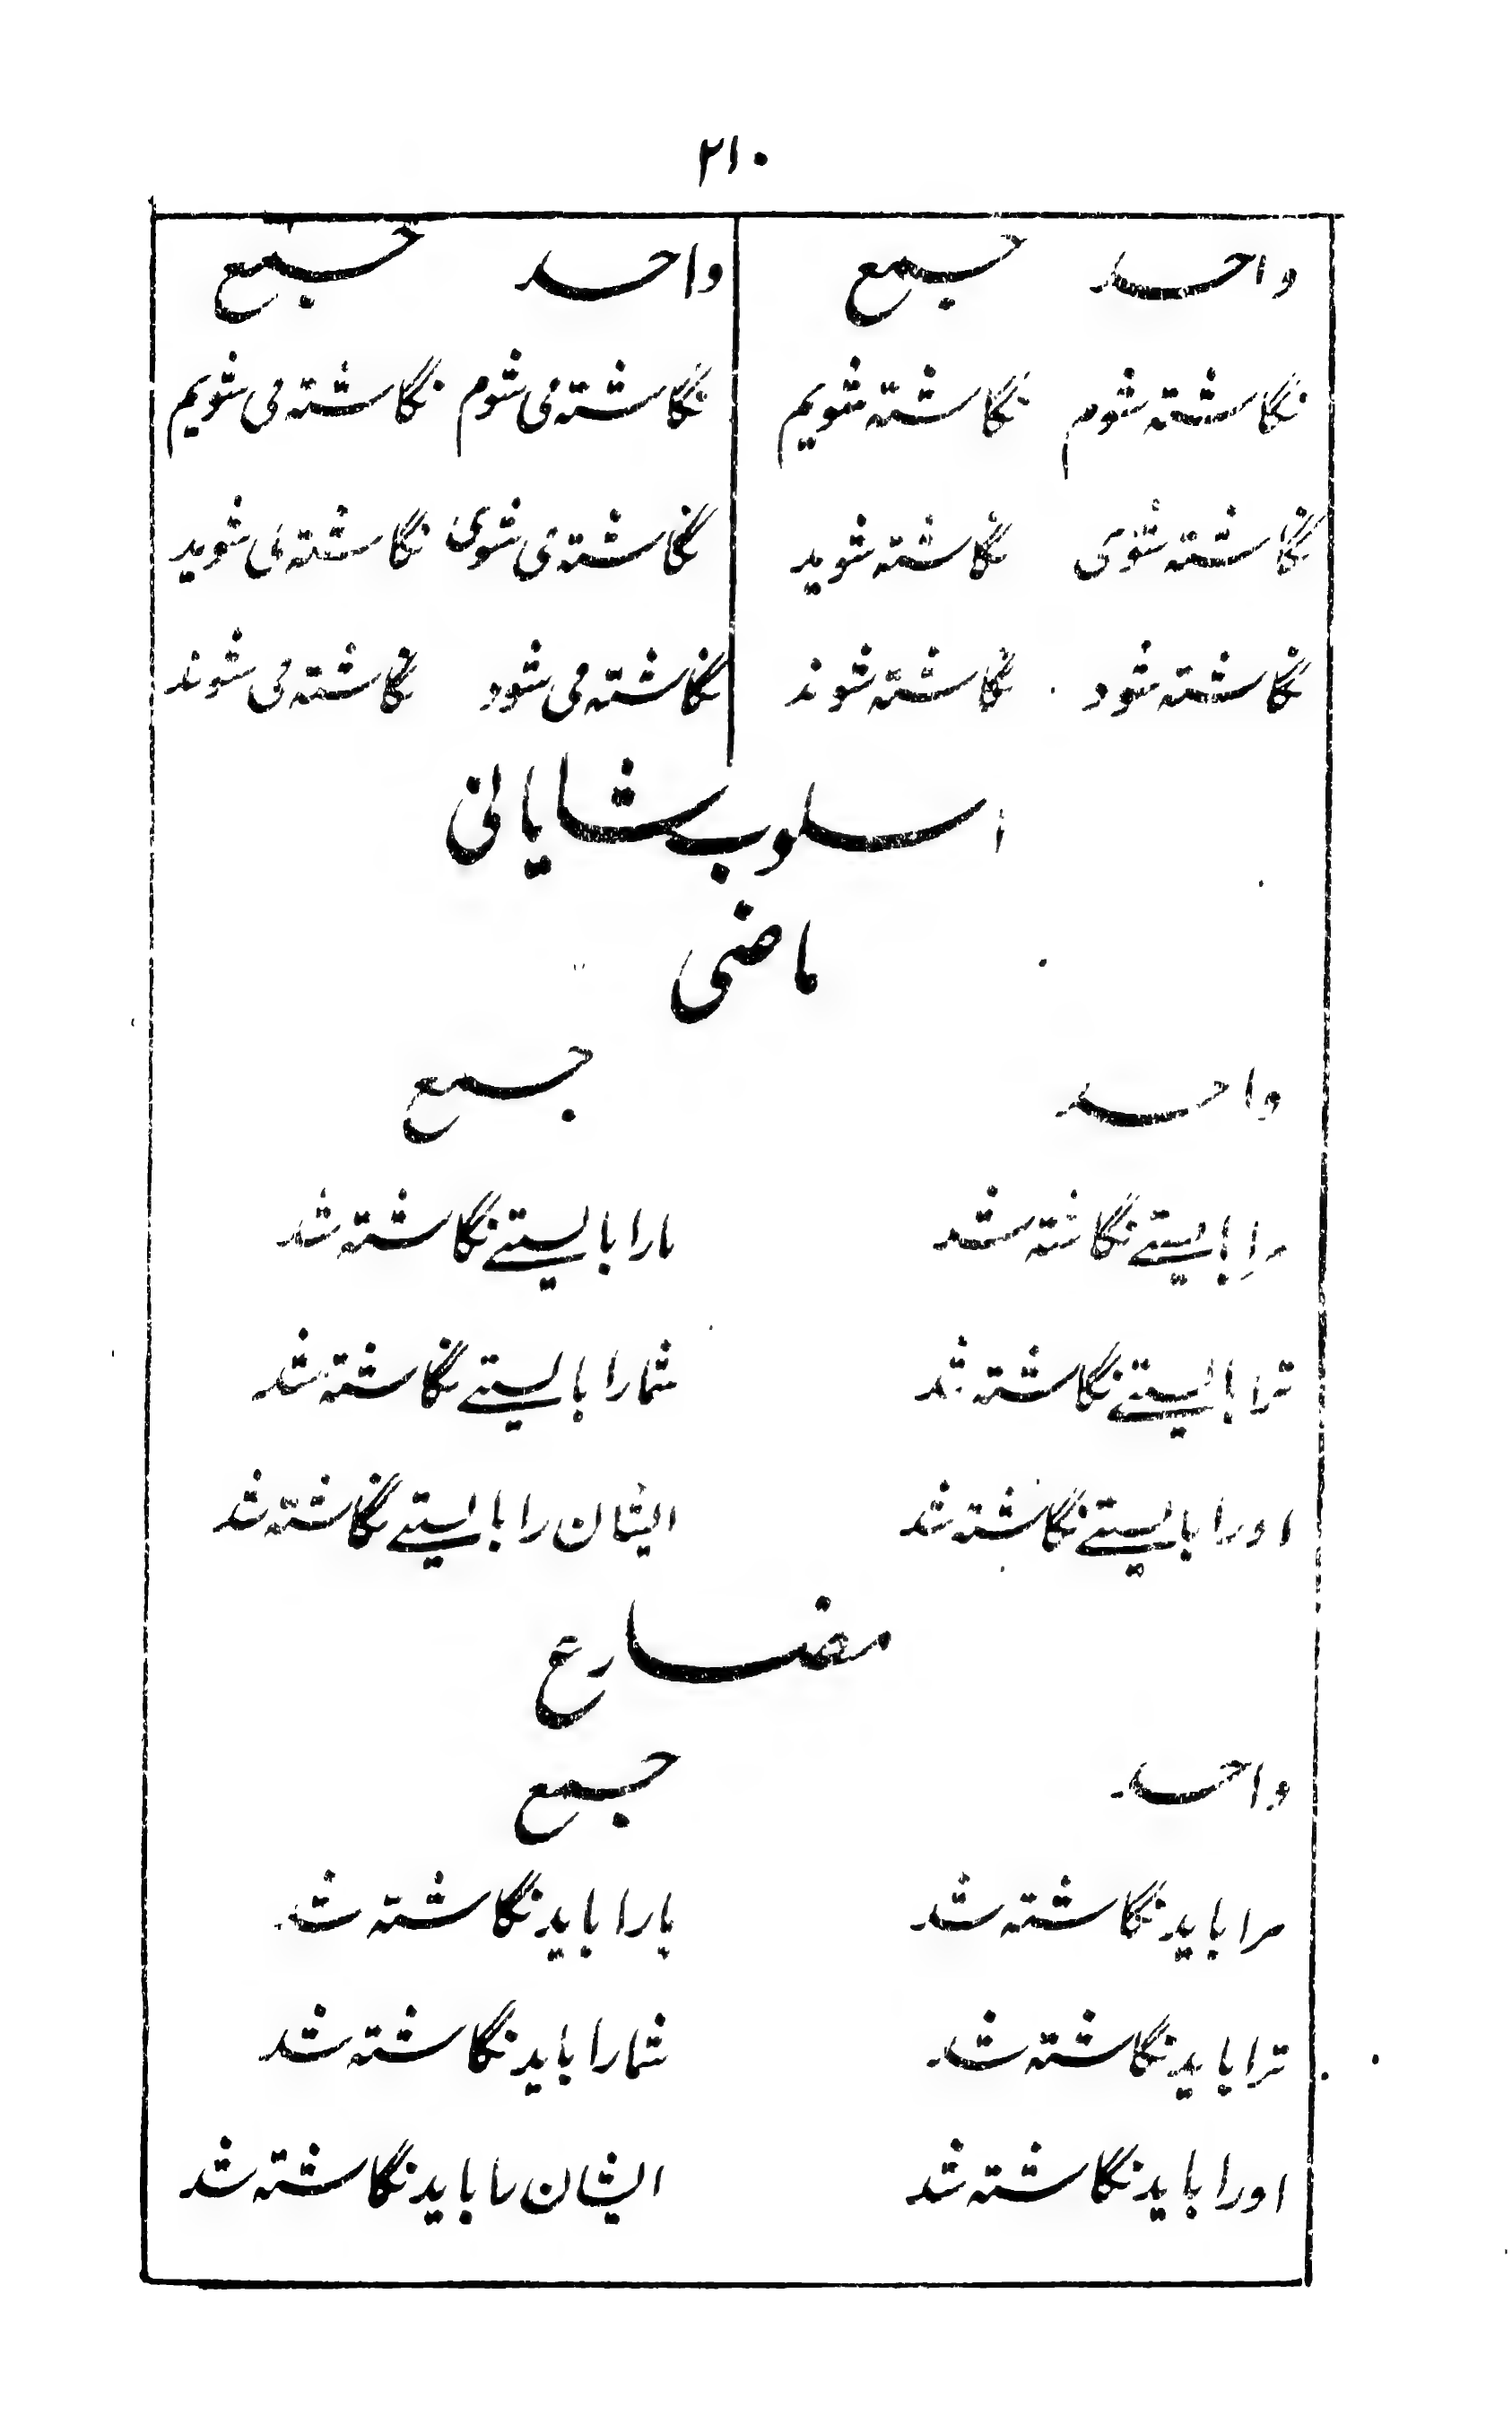 ۲۱۰
واحد جمع واحد جمع
نگاشته شوم نگاشته شویم نگاشته می شوم نگاشته می شویم
نگاشته شوی نگاشته شوید نگاشته می شوی نگاشته می شوید
نگاشته شود نگاشته شوند نگاشته می شود نگاشته می شوند
اسلوب شایانی
ماضی
واحد جمع
مرا بایستے نگاشته شد مارا بایستے نگاشته شد
ترا بایستے نگاشته شد شمارا بایستے نگاشته شد
اورا بایستے نگاشته شد ایشان را بایستے نگاشته شد
مضارع
واحد جمع
مرا باید نگاشته شد مارا باید نگاشته شد
ترا باید نگاشته شد شمارا باید نگاشته شد
اورا باید نگاشته شد ایشان را باید نگاشته شد